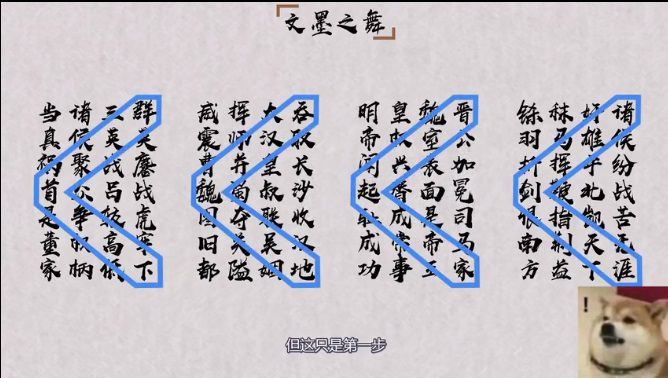 文墨之舞
诸侯纷战苦无涯
奸雄平北觊天下
秣马挥鞭指荆益
铩羽折剑恨南方
晋公加冕司马家
魏室衰面是帝王
皇权兴替成常事
明帝起成功
吞取长沙收汉地
大汉皇叔联吴姻
挥师并蜀夺天隘
威震曹魏图旧都
群英鏖战虎牢下
三英战吕较高低
诸侯聚众争权柄
当真祸首是董家
但这只是第一步